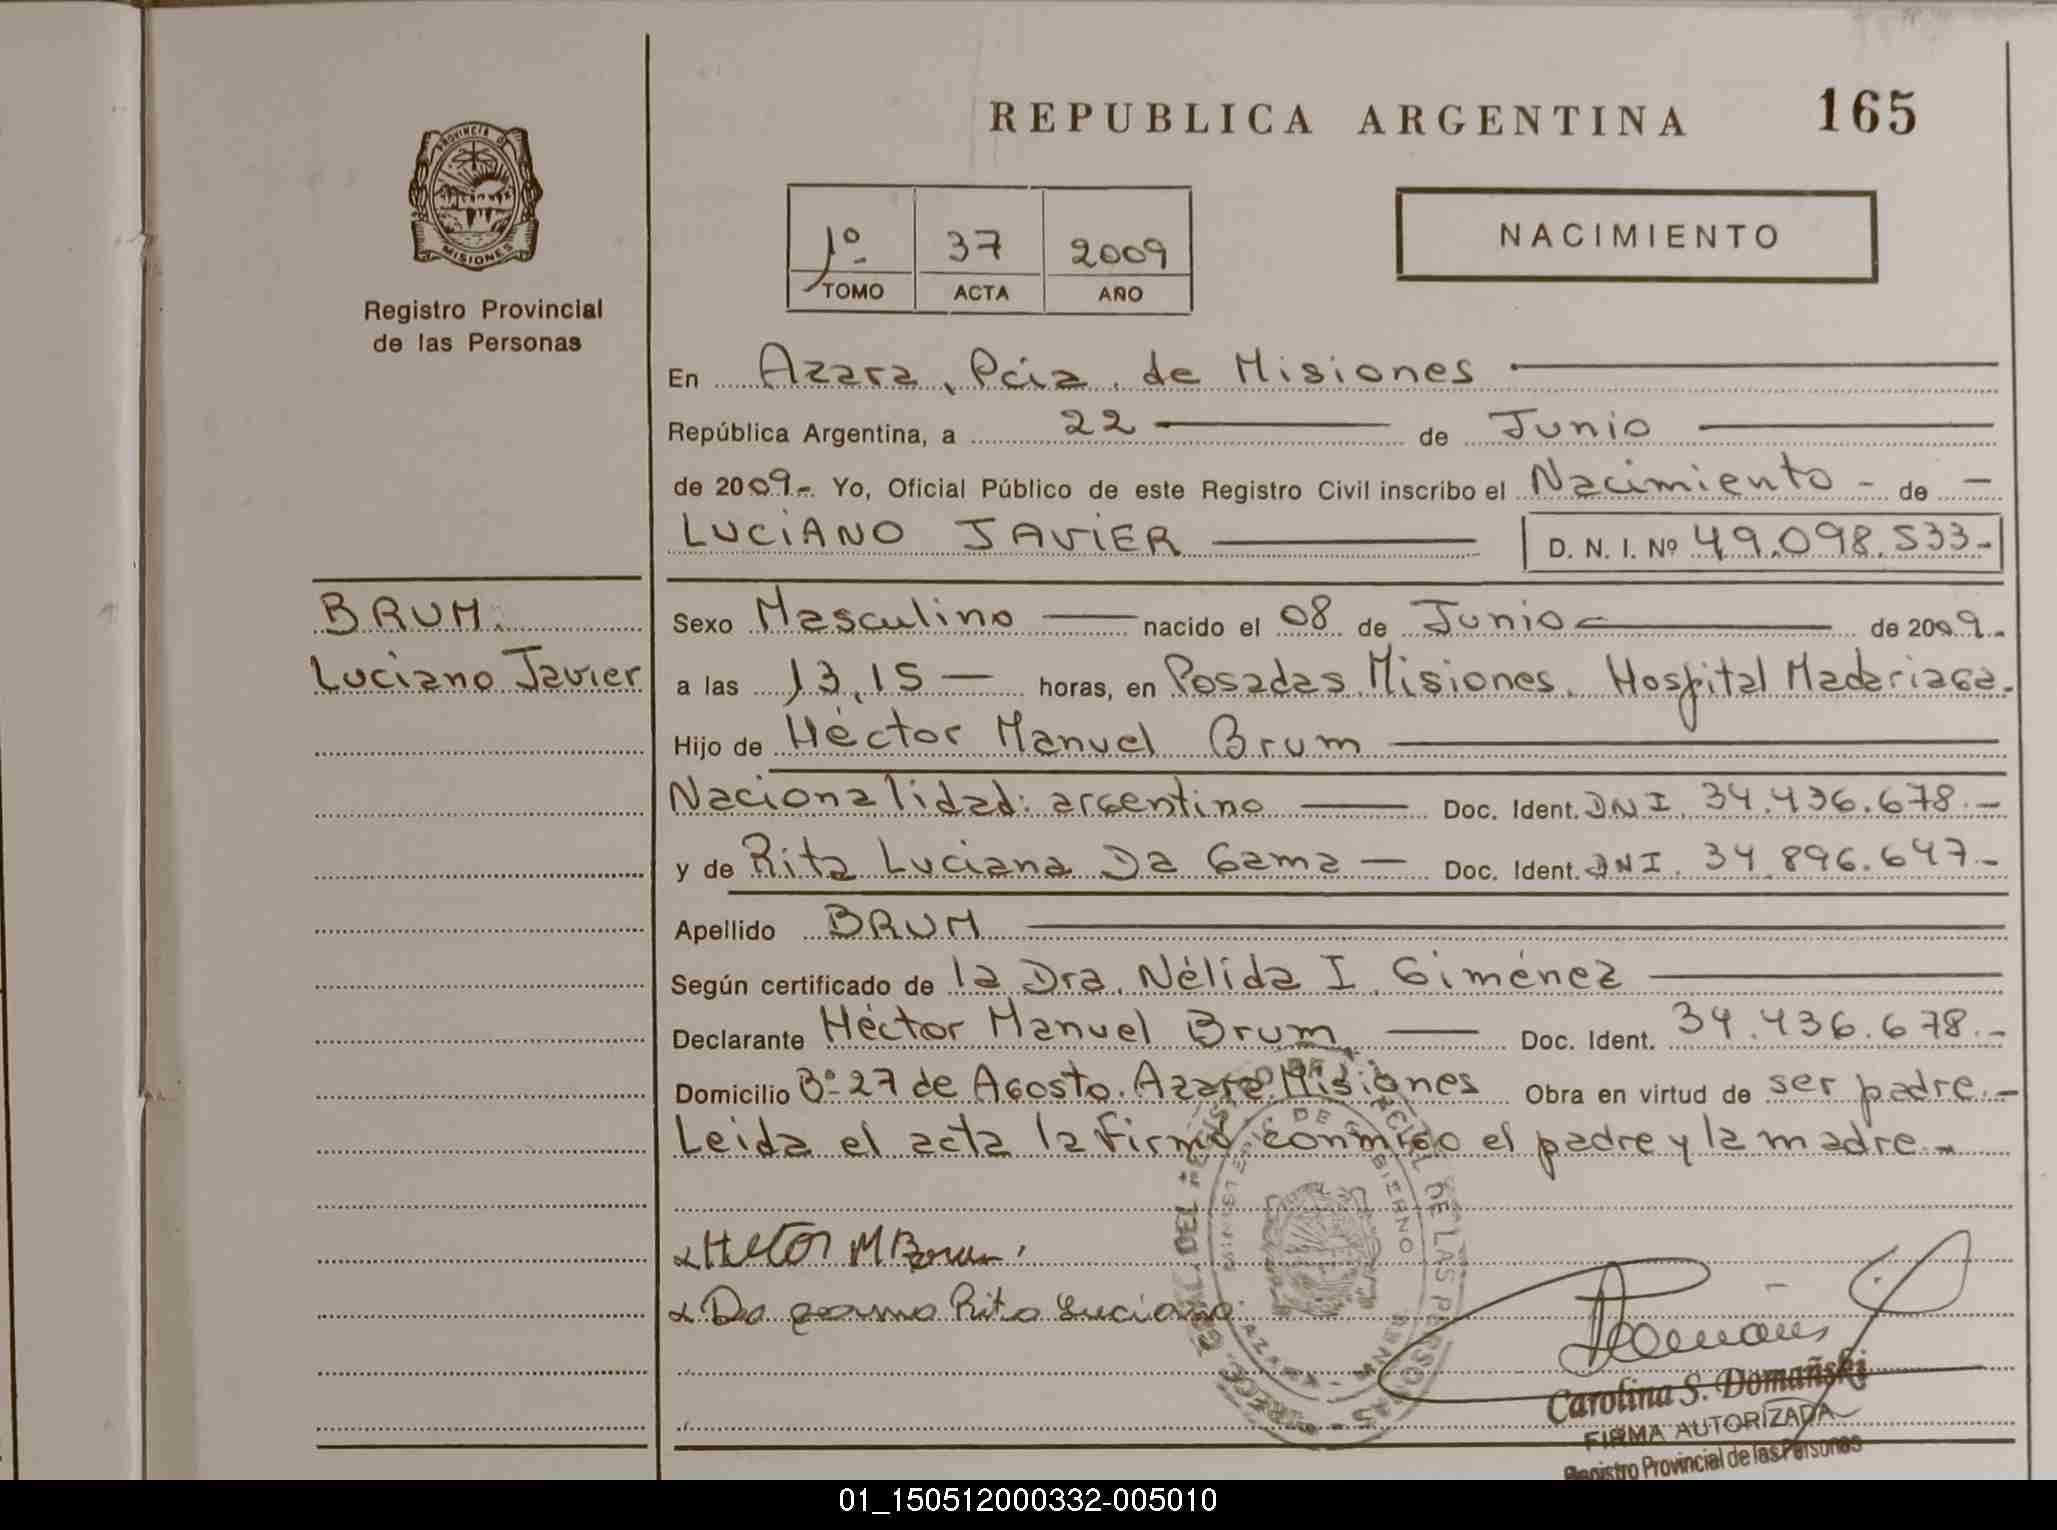 REPUBLICA ARGENTINA 165
PROVINCIA DE MISIONES
Registro Provincial
de las Personas
1º 37 2009
TOMO ACTA AÑO
NACIMIENTO
En Azara, Pcia. de Misiones
República Argentina, a 22 de Junio
de 2009.- Yo, Oficial Público de este Registro Civil inscribo el Nacimiento - de -
LUCIANO JAVIER D. N. I. Nº 49.098.533-
BRUM.
Luciano Javier
Sexo Masculino nacido el 08 de Junio de 2009.-
a las 13,15 horas, en Posadas Misiones. Hospital Madariaga.
Hijo de Héctor Manuel Brum
Nacionalidad: argentino Doc. Ident. DNI. 34.436.678.-
y de Rita Luciana Da Gama Doc. Ident. DNI. 34.896.647-
Apellido BRUM
Según certificado de la Dra. Nélida I. Giménez
Declarante Héctor Manuel Brum Doc. Ident. 34.436.678.-
Domicilio Bº 27 de Agosto. Azara. Misiones Obra en virtud de ser padre.-
Leida el acta la firma conmigo el padre y la madre.-
Hector M Brum
Da gama Rita Luciana
DE LAS PERSONAS
MINISTERIO DE GOBIERNO
AZARA
Carolina S. Domañski
FIRMA AUTORIZADA
Registro Provincial de las Personas
01_150512000332-005010